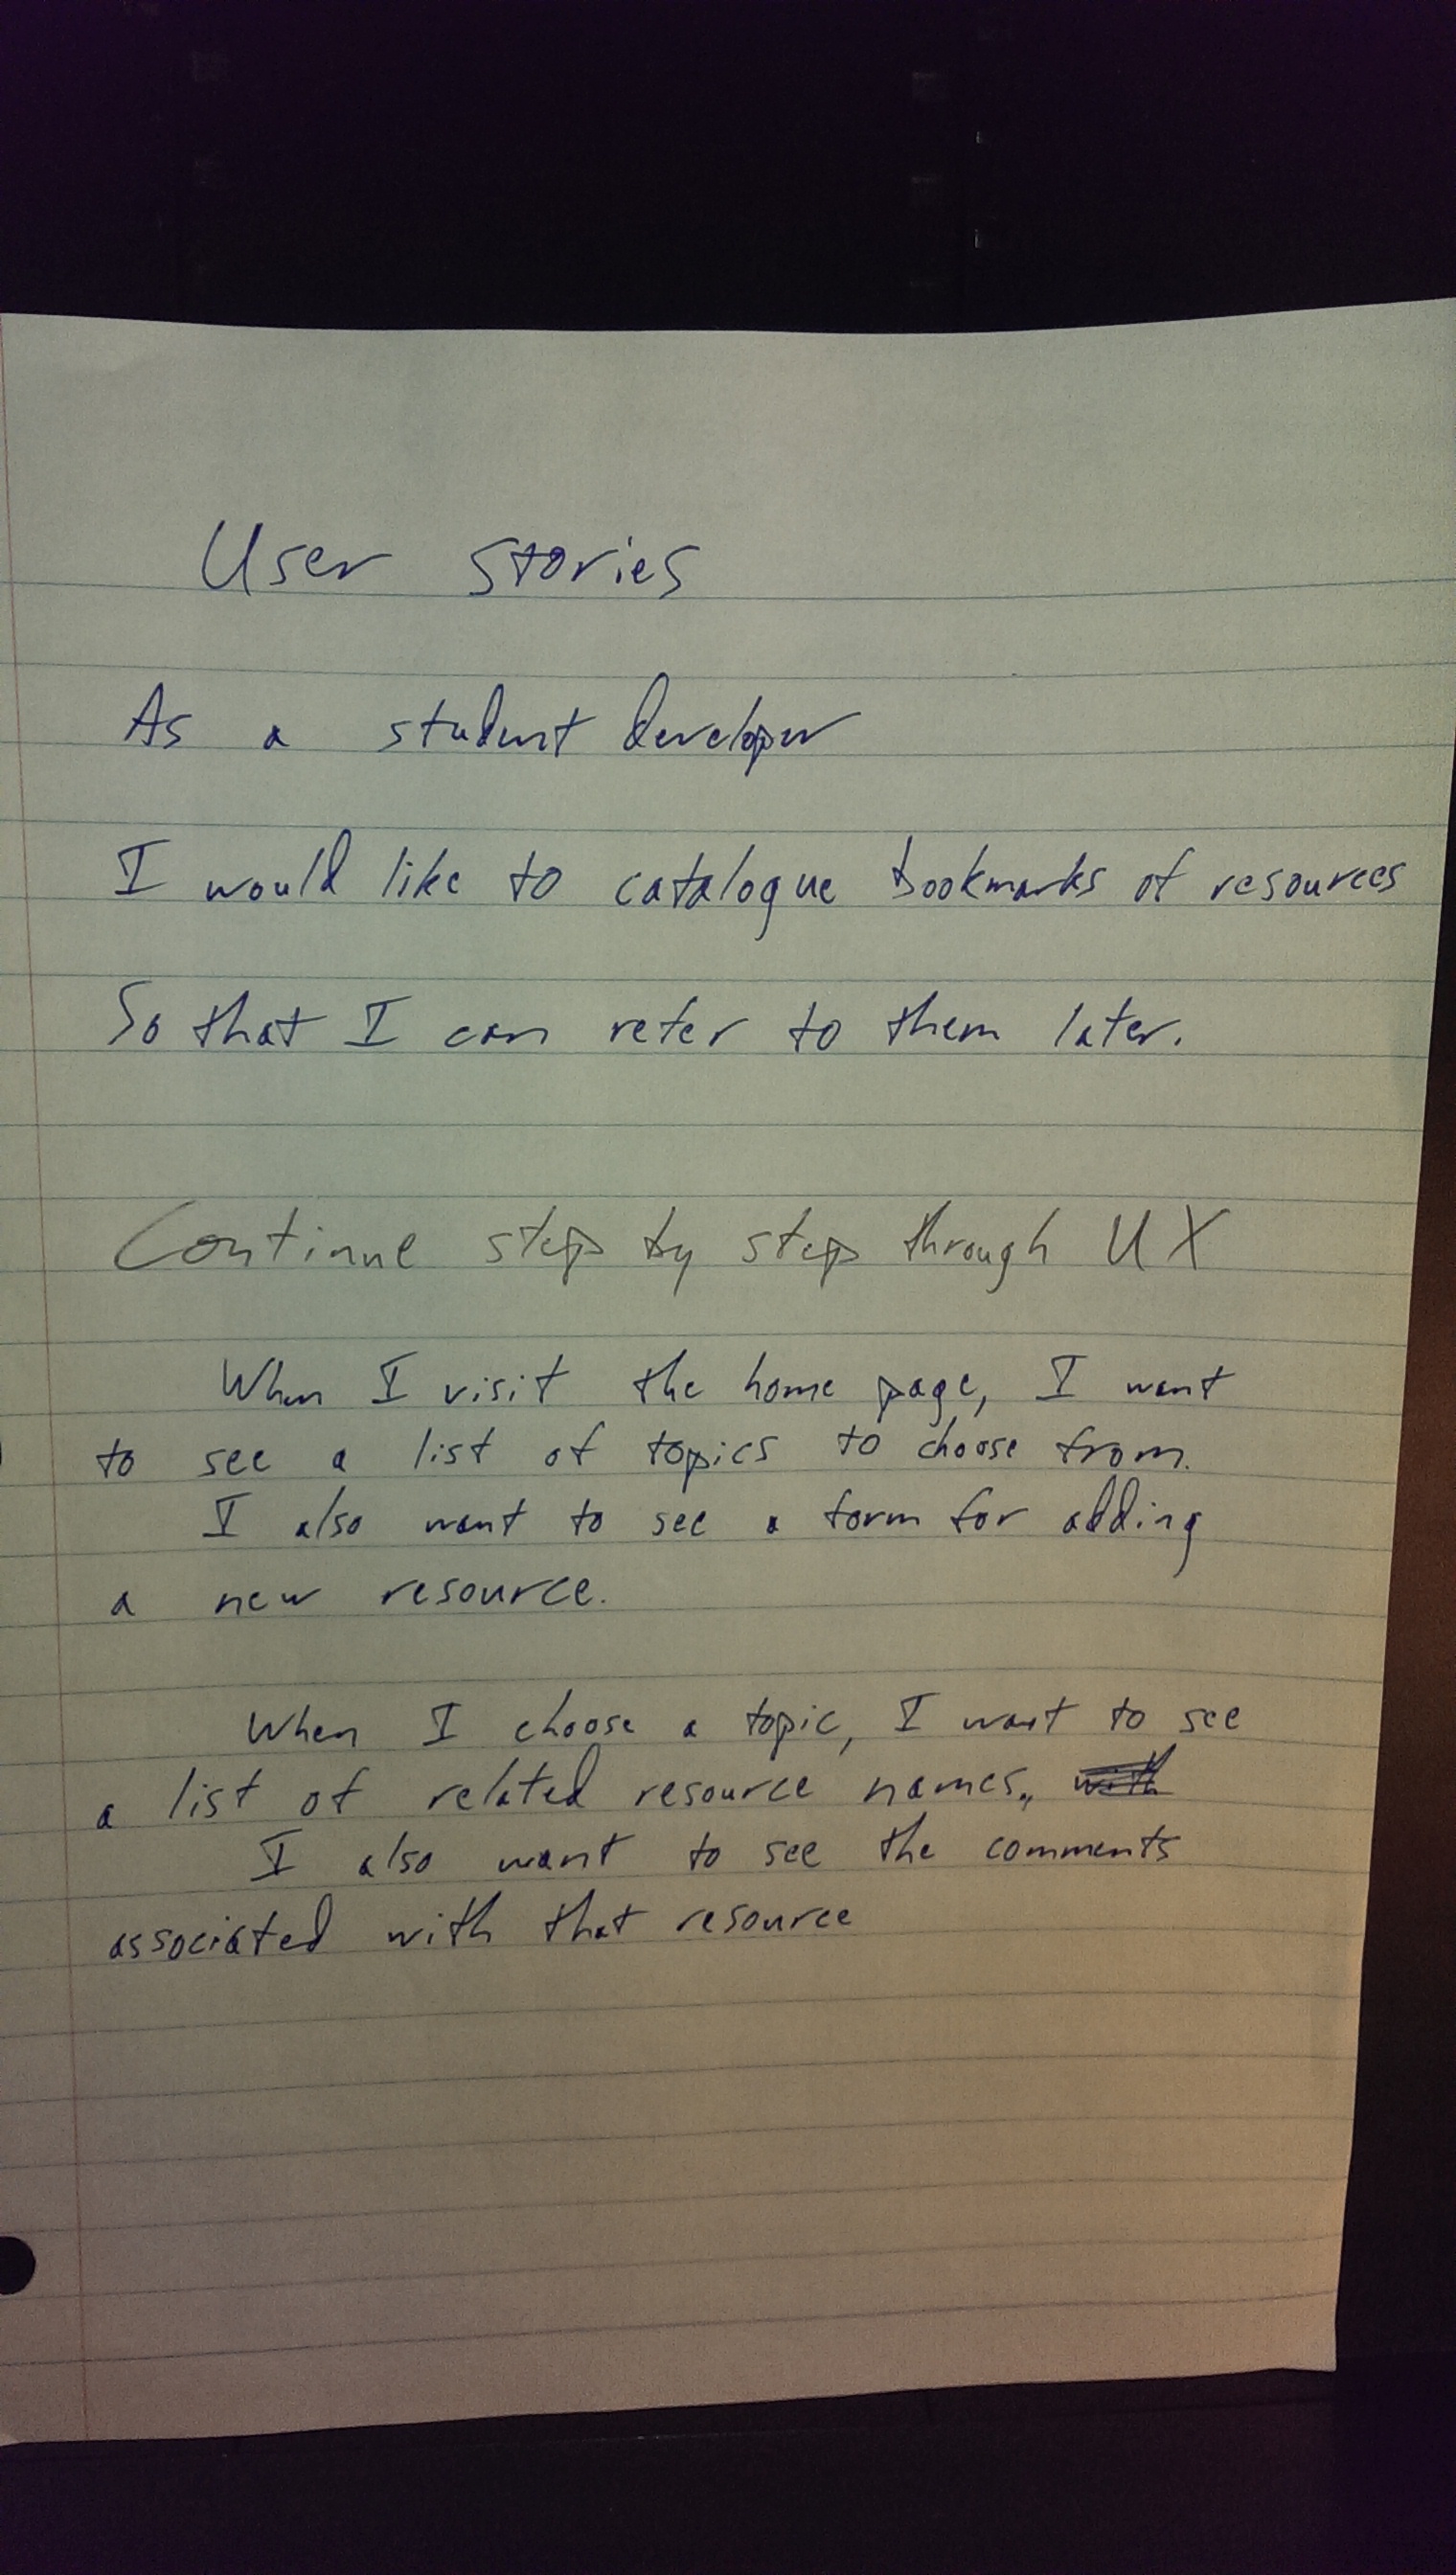 User stories
As a student developer
I would like to catalogue bookmarks of resources
So that I can refer to them later.
Continue step by step through UX
When I visit the home page, I want
to see a list of topics to choose from.
I also want to see a form for adding
a new resource.
When I choose a topic, I want to see
a list of related resource names., with
I also want to see the comments
associated with that resource